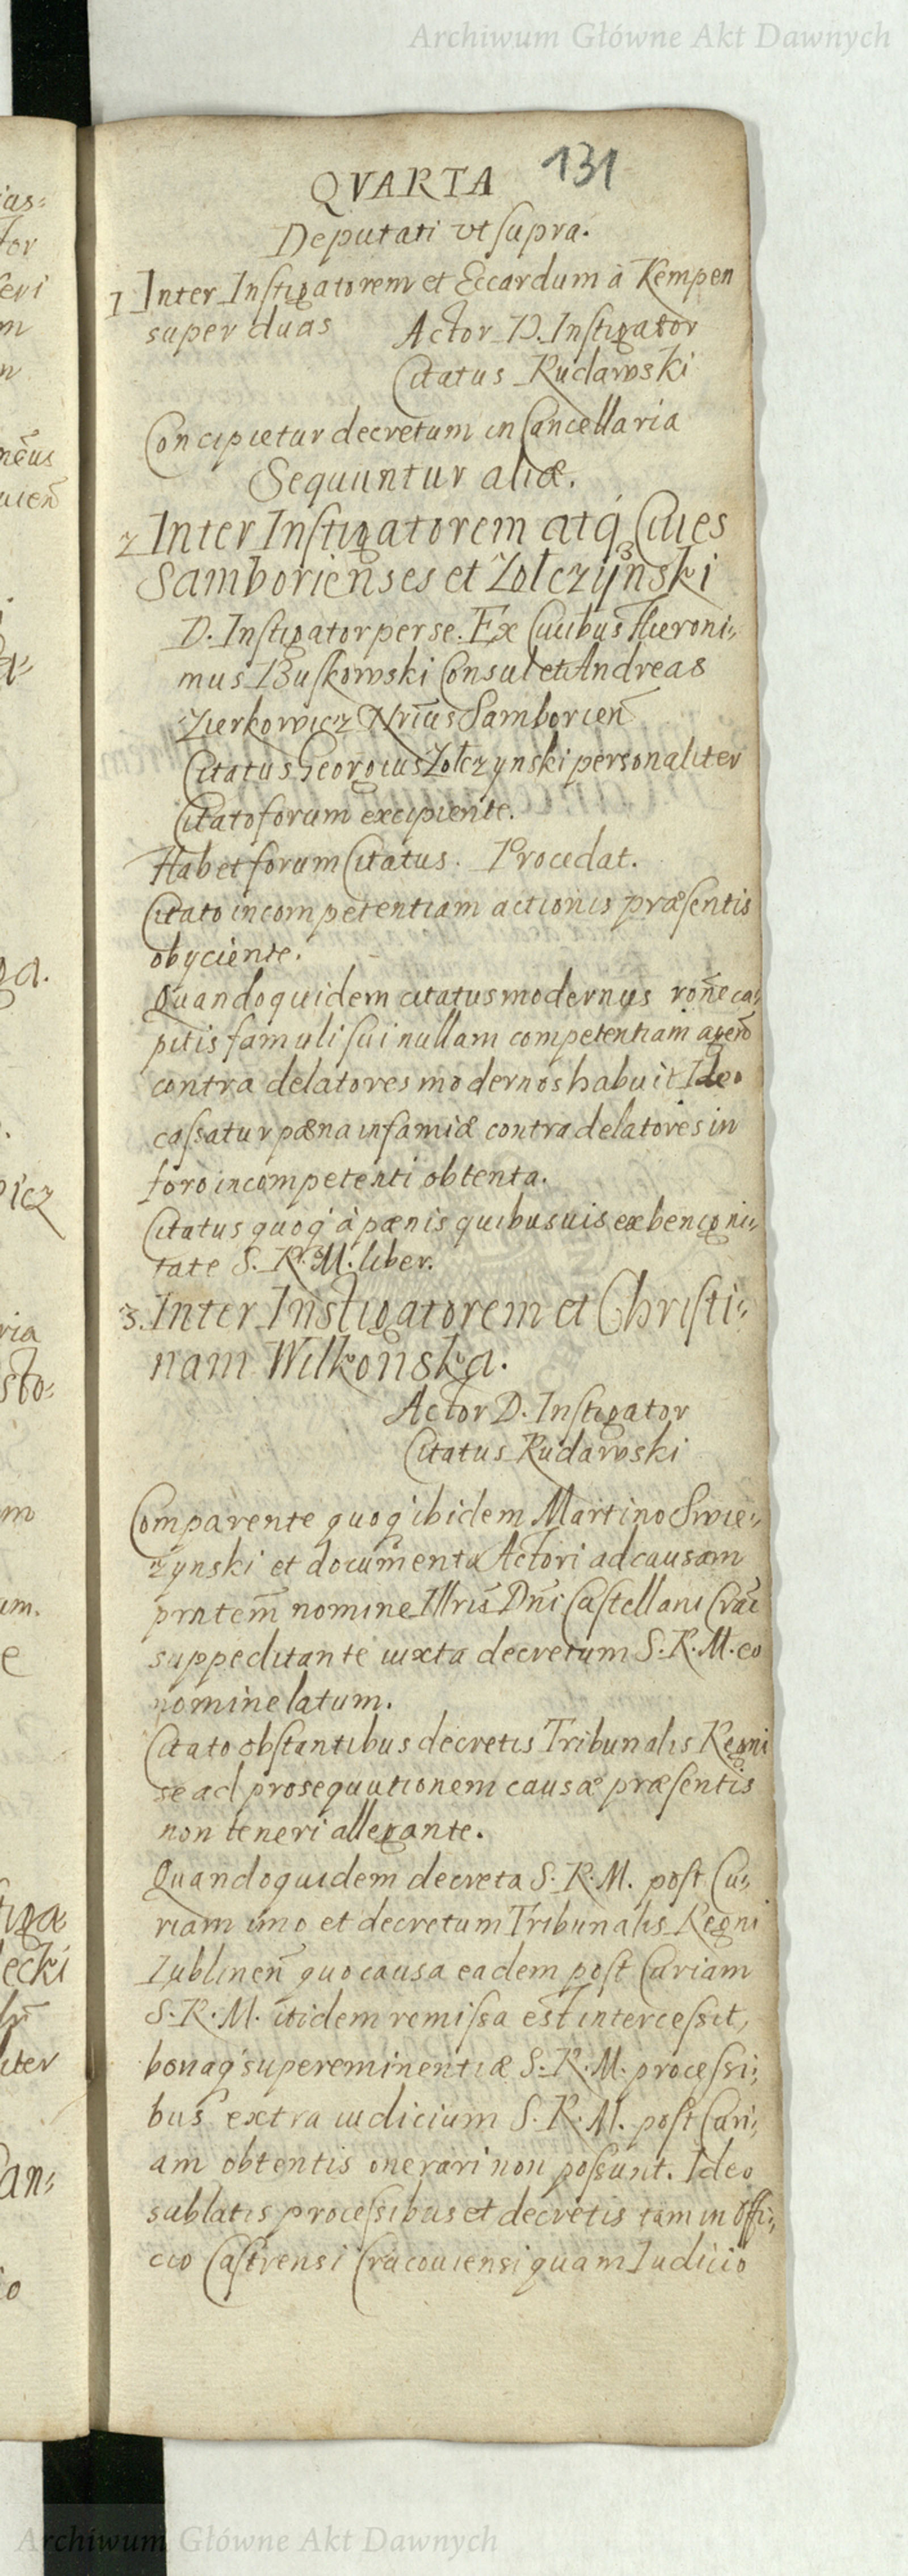 Archiwum Główne Akt Dawnych
131
QVARTA
Deputati vt supra.
1 Inter Instigatorem et Eccardum à Kempen
super duas Actor D. Instigator
Citatus Rudawski
Concipietur decretum in Cancellaria
Sequuntur aliæ.
2 Inter Instigatorem atq́ Ciues
Samborienses et Zołczyński
D. Instigator per se. Ex Ciuibus Hieroni-
mus Buskowski Consul et Andreas
Zierkowicz Nrius Samborien̄
Citatus Georgius Zołczynski personaliter
Citato forum excipiente.
Habet forum Citatus. Procedat.
Citato incompetentiam actionis præsentis
obyciente.
Quandoquidem citatus modernus rōne ca-
pitis famuli sui nullam competentiam agen̄
contra delatores modernos habuit Ideo
cassatur pœna infamiæ contra delatores in
foro incompetenti obtenta.
Citatus quoq́ à pœnis quibusuis ex benigni-
tate S. R. M. liber.
3. Inter Instigatorem et Christi-
nam Wilkońska.
Actor D. Instigator
Citatus Rudawski
Comparente quoq́ ibidem Martino Swie-
zynski et documenta Actori ad causam
prntem̄ nomine Illris Dn̄i Castellani Crac̄
suppeditante iuxta decretum S. R. M. eo
nomine latum.
Citato obstantibus decretis Tribunalis Regni
se ad prosequutionem causæ præsentis
non teneri allegante.
Quandoquidem decreta S. R. M. post Cu-
riam imo et decretum Tribunalis Regni
Lublinen̄ quo causa eadem post Curiam
S. R. M. itidem remissa est intercessit,
bonaq́ supereminentiæ S. R. M. processi-
bus extra iudicium S. R. M. post Curi-
am obtentis onerari non possunt. Ideo
sublatis processibus et decretis tam in Offi-
cio Castrensi Cracouiensi quam Iudicio
Archiwum Główne Akt Dawnych